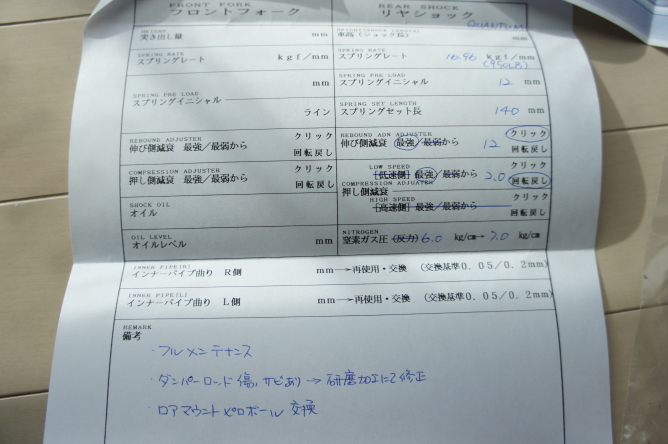 FRONT FORK
フロントフォーク
REAR SHOCK
リヤショック
QUANTUM
突き出し量 mm
車高(ショック長) mm
SPRING RATE
スプリングレート kgf/mm
SPRING RATE
スプリングレート 16.96 kgf/mm
(950LB)
mm
SPRING PRE LOAD
スプリングイニシャル 12 mm
SPRING PRE LOAD
スプリングイニシャル
ライン
SPRING SET LENGTH
スプリングセット長 140 mm
REBOUND ADJUSTER クリック
伸び側減衰 最強/最弱から 回転戻し
REBOUND ADN ADJUSTER クリック
伸び側減衰 最強/最弱から 12 回転戻し
COMPRESSION ADJUSTER クリック
押し側減衰 最強/最弱から 回転戻し
LOW SPEED クリック
[低速側] 最強/最弱から 2.0 回転戻し
COMPRESSION ADJUGATER
押し側減衰
HIGH SPEED クリック
[高速側] 最強/最弱から 回転戻し
SHOCK OIL
オイル
OIL LEVEL
オイルレベル mm
NITROGEN
窒素ガス圧 (反力) 6.0 kg/c㎡→ 7.0 kg/c㎡
INNER PIPE[R]
インナーパイプ曲り R側 mm→再使用・交換 (交換基準0.05/0.2mm)
INNER PIPE[L]
インナーパイプ曲り L側 mm→再使用・交換 (交換基準0.05/0.2mm)
REMARK
備考
・フルメンテナンス
・ダンパーロッド傷,サビあり→研磨加工にて修正
・ロアマウントピロボール交換